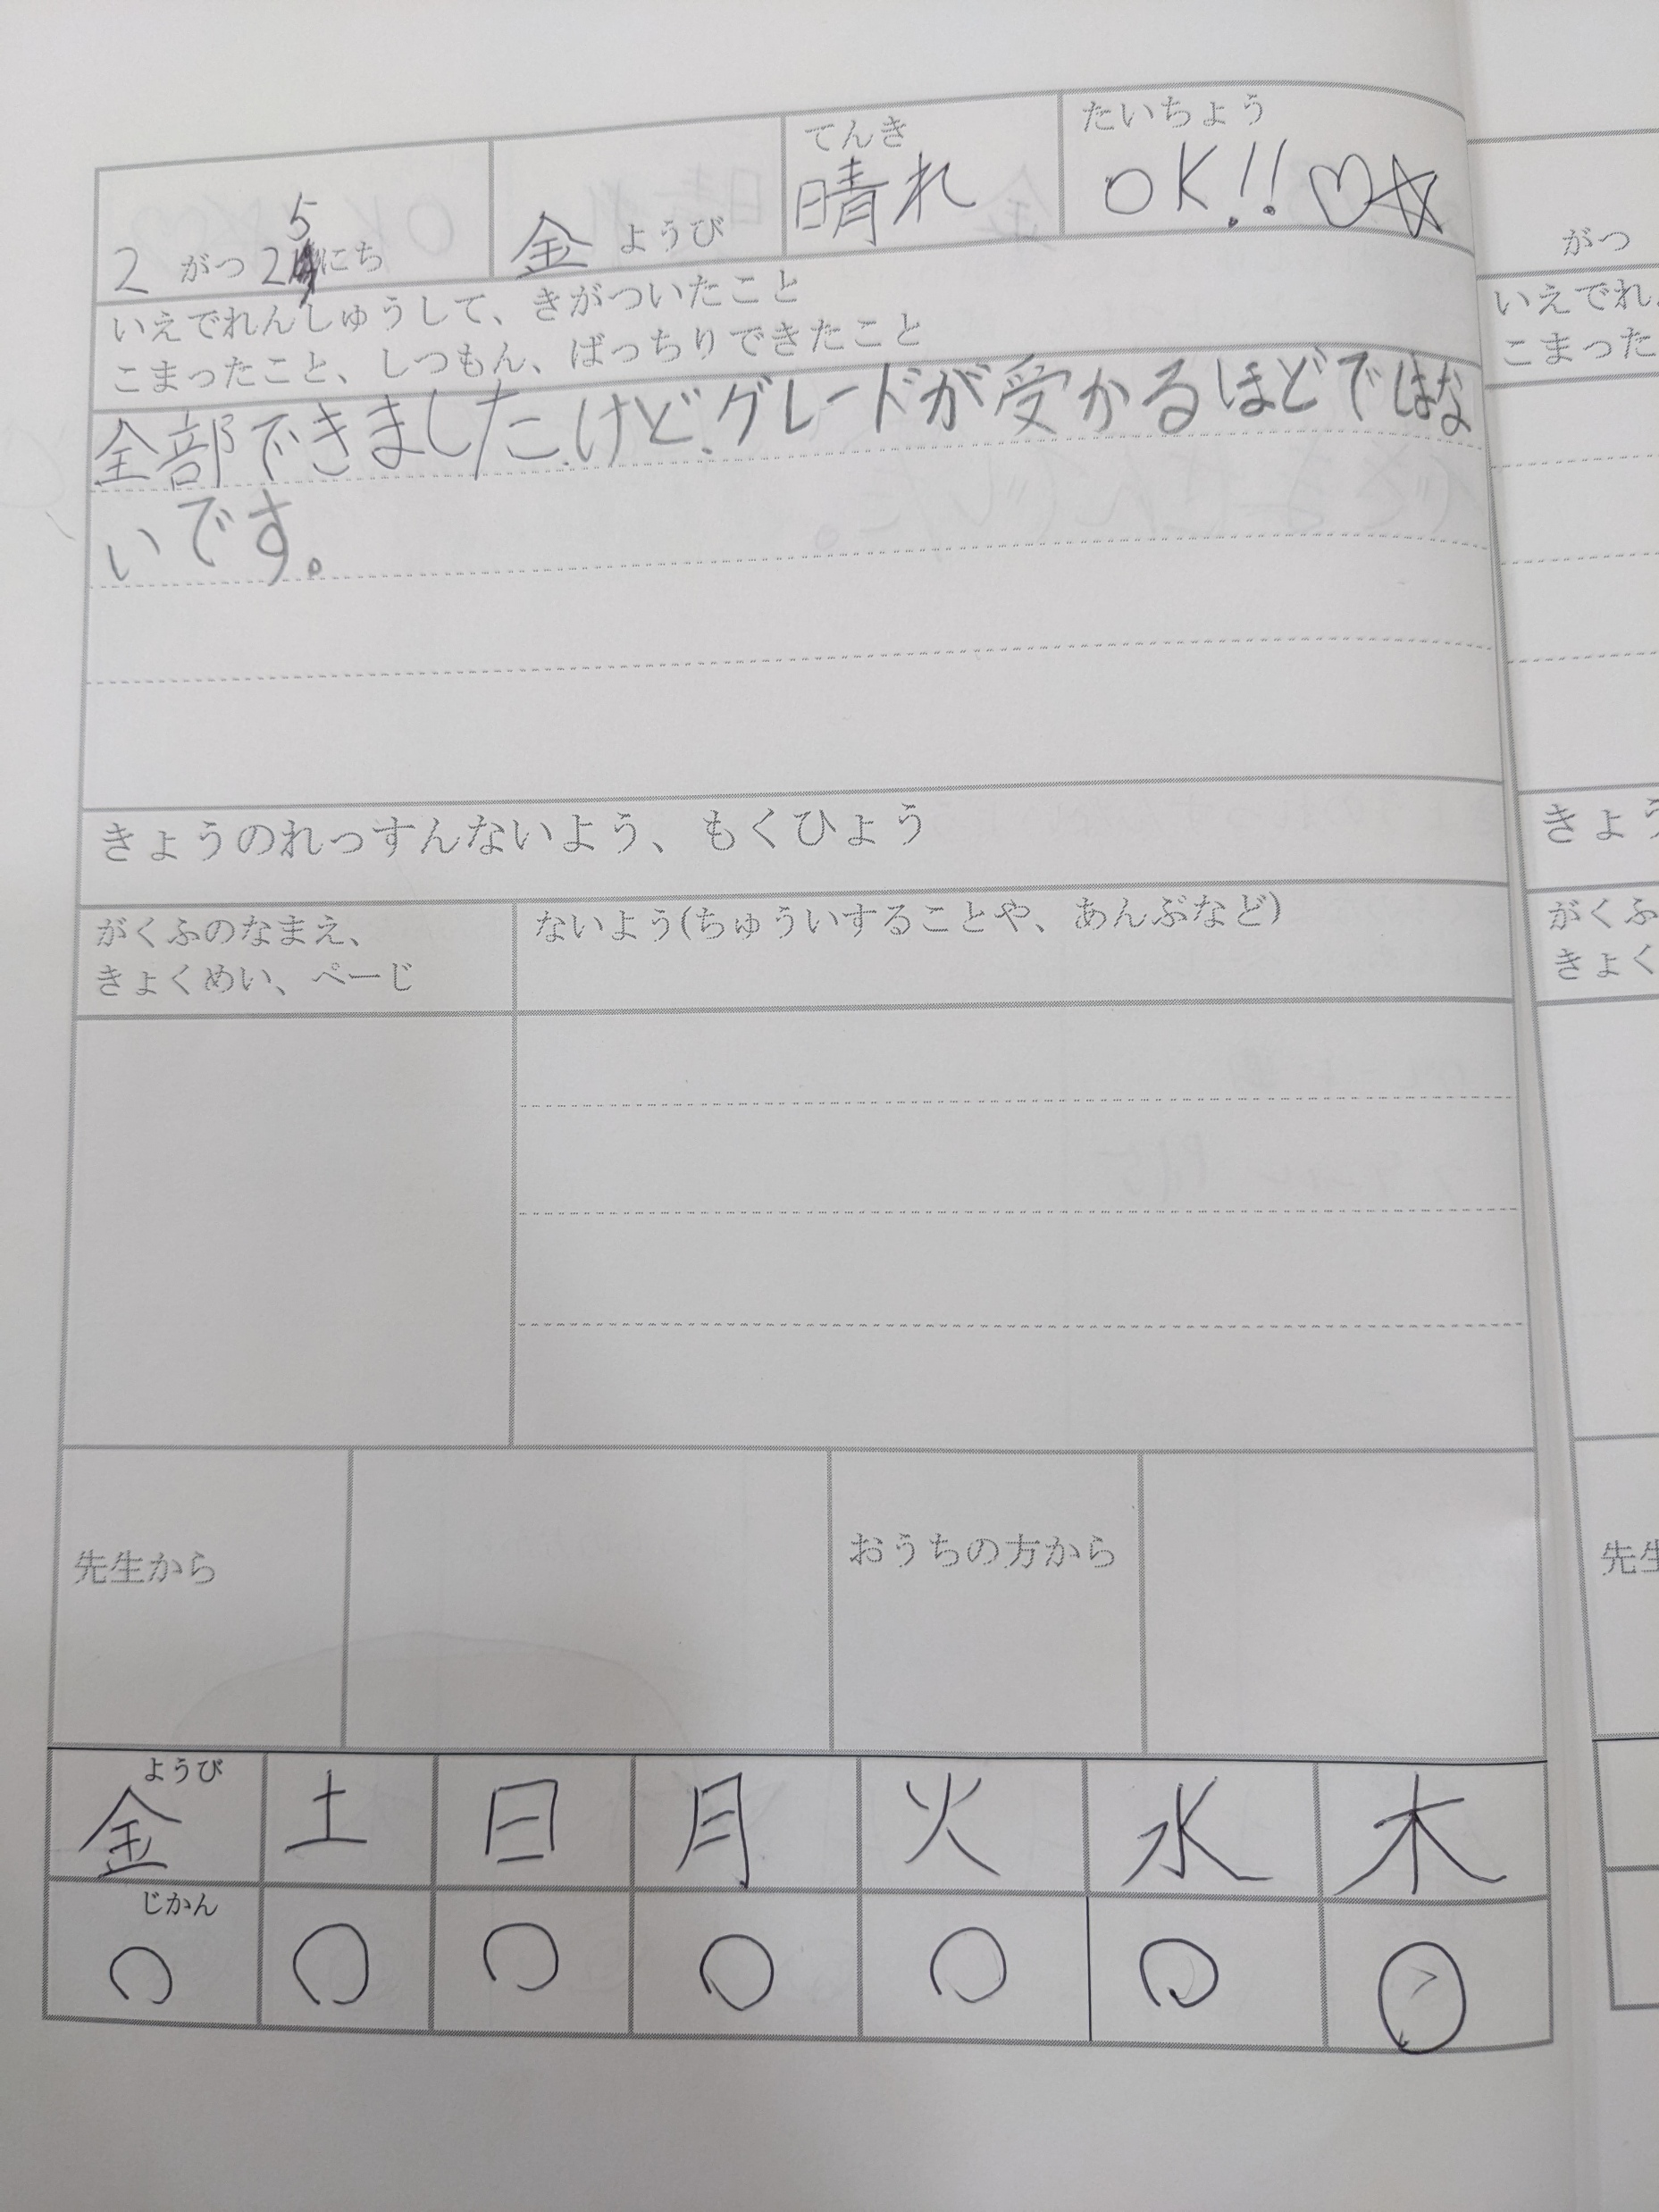 2 がつ 25にち
金 ようび
てんき
晴れ
たいちょう
OK!!♡☆
いえでれんしゅうして、きがついたこと
こまったこと、しつもん、ばっちりできたこと
全部できました、けど、グレードが受かるほどではな
いです。
きょうのれっすんないよう、もくひょう
がくふのなまえ、
きょくめい、ページ
ないよう(ちゅういすることや、あんぶなど)
先生から
おうちの方から
ようび
金 土 日 月 火 水 木
じかん
○ ○ ○ ○ ○ ○ ○
がつ
いえでれ
こまった
きょう
がくふ
きょく
先生